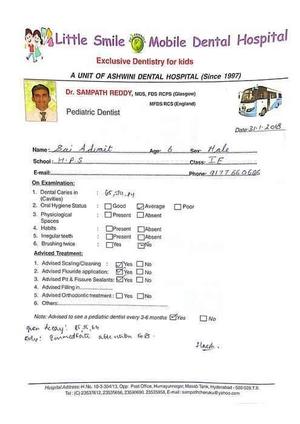 Little Smile Mobile Dental Hospital
Exclusive Dentistry for kids
A UNIT OF ASHWINI DENTAL HOSPITAL (Since 1997)
Dr. SAMPATH REDDY, MDS, FDS RCPS (Glasgow)
MFDS RCS (England)
Pediatric Dentist
Date: 31-1-2018
Name: Sai Advait Age: 6 Sex: Male
School: H.P.S Class: I E
E-mail: Phone: 9177660686
On Examination:
1. Dental Caries in : 65, 74, 84
(Cavities)
2. Oral Hygiene Status : Good Average Poor
3. Physiological : Present Absent
Spaces
4. Habits : Present Absent
5. Irregular teeth : Present Absent
6. Brushing twice : Yes No
Adviced Treatment:
1. Advised Scaling/Cleaning : Yes No
2. Advised Flouride application: Yes No
3. Advised Pit & Fissure Sealants: Yes No
4. Advised Filling in
5. Advised Orthodontic treatment : Yes No
6. Others:
Note: Advised to see a pediatric dentist every 3-6 months Yes No
85, 75, 64
Only: Immediate attention
Hospital Address: H.No. 10-3-304/13, Opp. Post Office, Humayunnagar, Masab Tank, Hyderabad - 500 028. T.S.
Tel: (C) 23537612, 23535656, 23530690, 23235958, E-mail: sampathcherukuv@yahoo.com